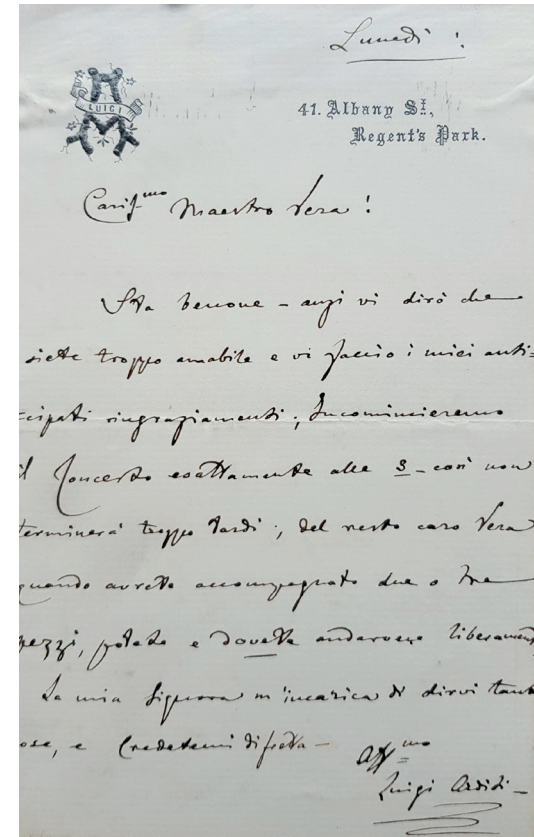 Lunedì !
LUIGI
41. Albany St.,
Regent's Park.
Cariss.mo Maestro Vera !
Sta benone – anzi vi dirò che
siete troppo amabile e vi faccio i miei anti=
cipati ringraziamenti; Incomincieremo
il Concerto esattamente alle 3 – così non
terminerà troppo tardi; del resto caro Vera
quando avrete accompagnato due o tre
pezzi, potete e dovete andarvene liberament
La mia Signora m'incarica di dirvi tant
ose, e Credetemi di fretta –
Aff.mo
Luigi Arditi –